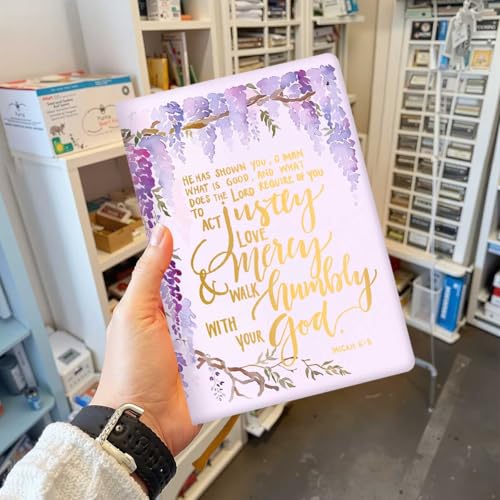 HE HAS SHOWN YOU, O MAN
WHAT IS GOOD, AND WHAT
DOES THE LORD REQUIRE OF YOU
TO
ACT Justly
LOVE
Mercy
& WALK humbly
WITH YOUR God.
MICAH 6:8